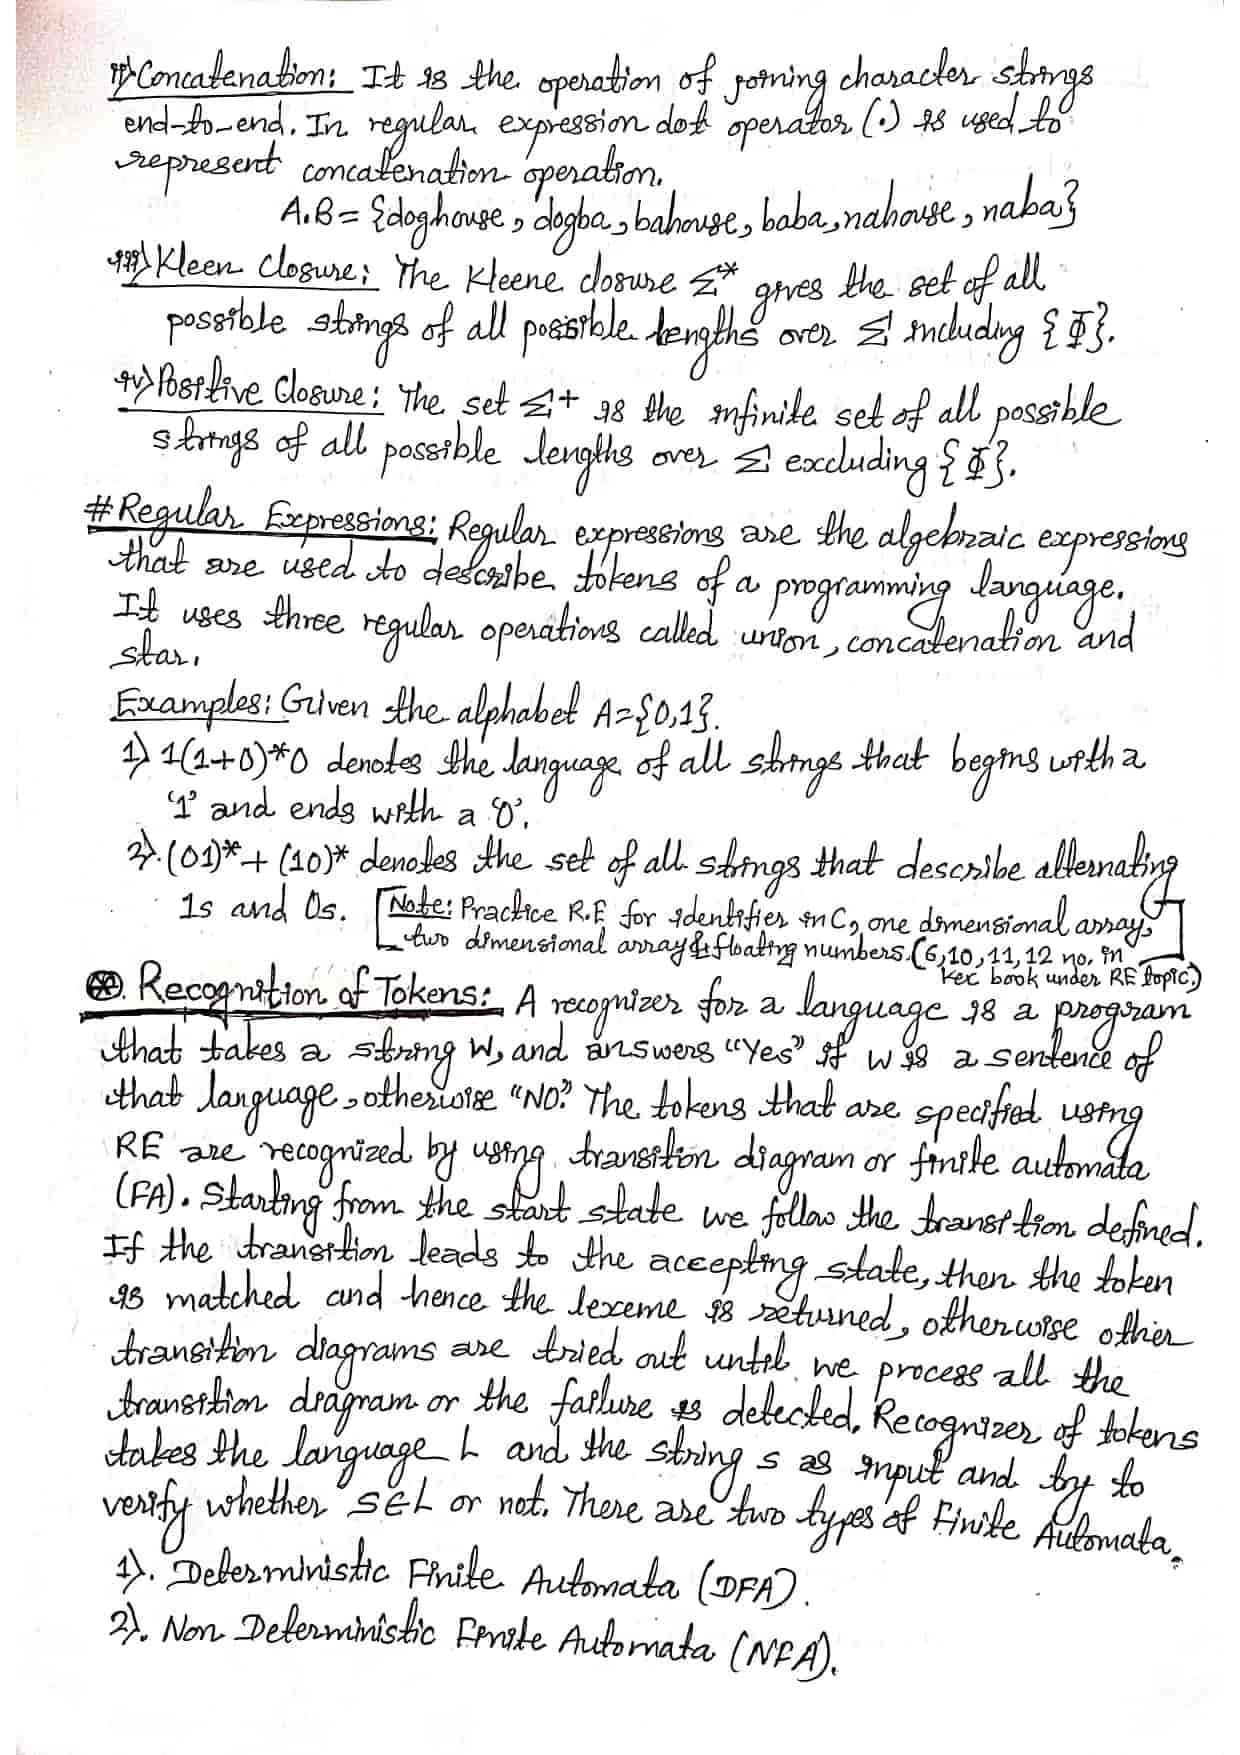 ii) Concatenation: It is the operation of joining character strings
end-to-end. In regular expression dot operator (.) is used to
represent concatenation operation.
A.B = {doghouse, dogba, bahouse, baba, nahouse, naba}
iii) Kleen Closure: The Kleene closure Σ* gives the set of all
possible strings of all possible lengths over Σ including {Φ}.
iv) Positive Closure: The set Σ+ is the infinite set of all possible
strings of all possible lengths over Σ excluding {Φ}.
# Regular Expressions: Regular expressions are the algebraic expressions
that are used to describe tokens of a programming language.
It uses three regular operations called union, concatenation and
star.
Examples: Given the alphabet A={0,1}.
1) 1(1+0)*0 denotes the language of all strings that begins with a
'1' and ends with a '0'.
2). (01)*+ (10)* denotes the set of all strings that describe alternating
1s and 0s. [Note: Practice R.E for identifier in C, one dimensional array,
two dimensional array & floating numbers. (6,10,11,12 no. in
Kec book under RE topic.)]
⊛. Recognition of Tokens: A recognizer for a language is a program
that takes a string w, and answers "Yes" if w is a sentence of
that language, otherwise "NO". The tokens that are specified using
RE are recognized by using transition diagram or finite automata
(FA). Starting from the start state we follow the transition defined.
If the transition leads to the accepting state, then the token
is matched and hence the lexeme is returned, otherwise other
transition diagrams are tried out until we process all the
transition diagram or the failure is detected. Recognizer of tokens
takes the language L and the string s as input and try to
verify whether S∈L or not. There are two types of Finite Automata.
1). Deterministic Finite Automata (DFA).
2). Non Deterministic Finite Automata (NFA).